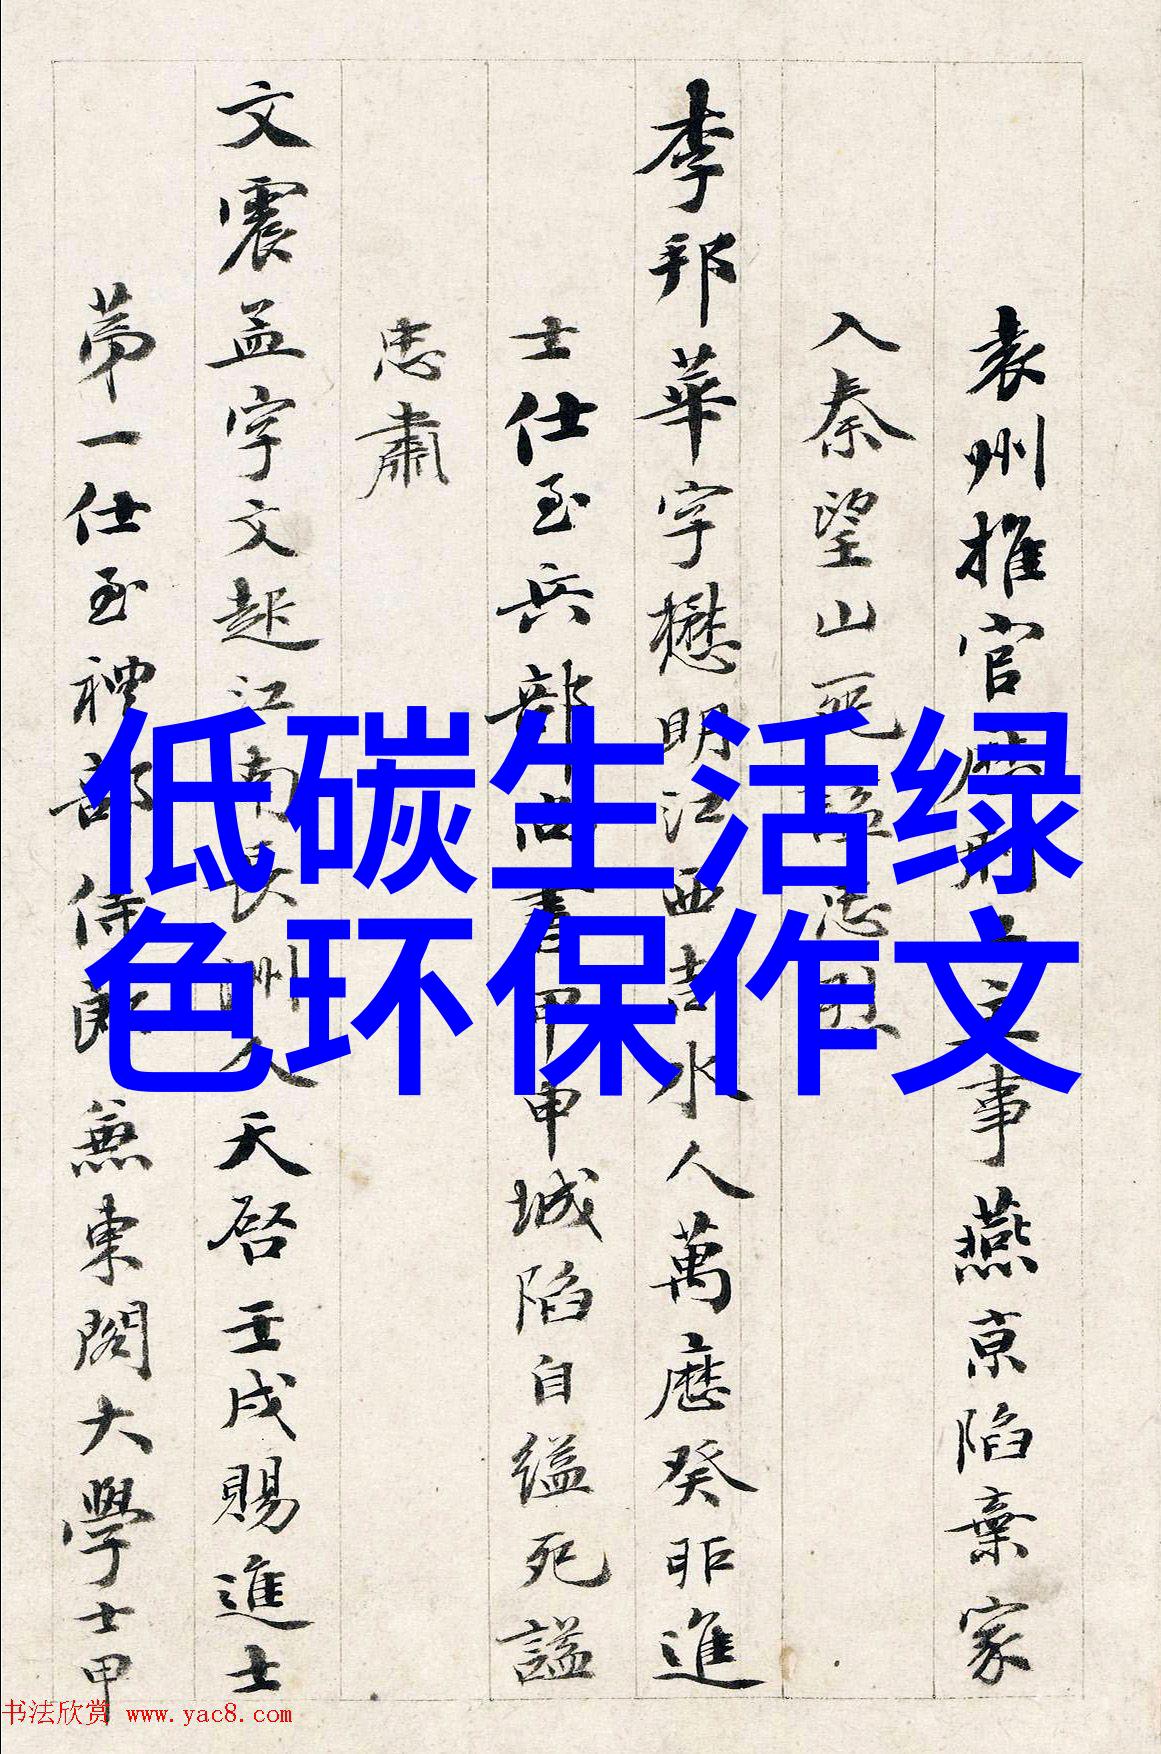 低碳生活绿
色环保作文
袁州推官主事燕京陷棄家
入秦望山死忠烈
李邦華字懋明江西吉水人萬歷癸卯進
士仕至兵部尚書甲申城陷自縊死謚
忠肅
文震孟字文起江南長洲人天啓壬戌賜進士
第一仕至禮部侍郎兼東閣大學士甲
书法欣赏 www.yac8.com